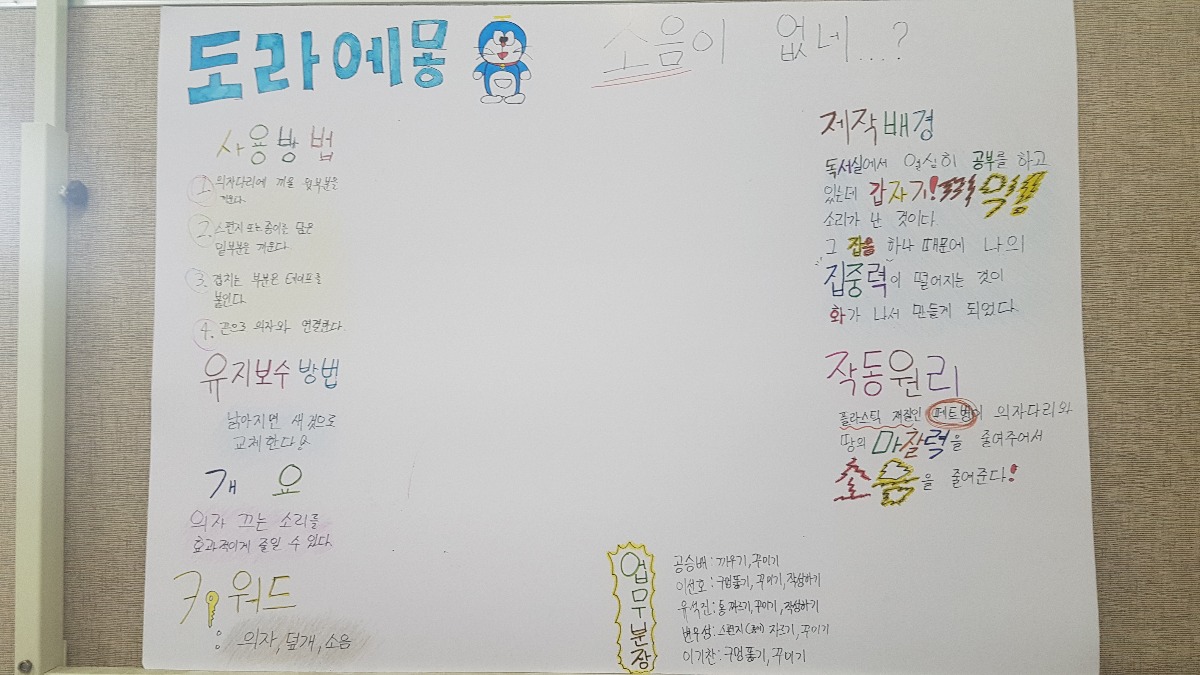 도라에몽
소음이 없네...?
사용방법
1. 의자다리에 끼울 윗부분을
끼운다.
2. 스펀지 또는 종이를 담은
밑부분을 끼운다.
3. 겹치는 부분은 테이프를
붙인다.
4. 끈으로 의자와 연결한다.
유지보수 방법
낡아지면 새 것으로
교체한다!
개요
의자 끄는 소리를
효과적이게 줄일 수 있다.
키워드
: 의자, 덮개, 소음
제작배경
독서실에서 열심히 공부를 하고
있는데 갑자기! 끽끽
소리가 난 것이다.
그 잡음 하나 때문에 나의
"집중력"이 떨어지는 것이
화가 나서 만들게 되었다.
작동원리
플라스틱 재질인 페트병이 의자다리와
땅의 마찰력을 줄여주어서
소음을 줄여준다!
업무분장
공승배 : 끼우기, 꾸미기
이선호 : 구멍뚫기, 꾸미기, 작성하기
유석진 : 통 자르기, 꾸미기, 작성하기
변우성 : 스펀지 자르기, 꾸미기
이기찬 : 구멍뚫기, 꾸미기